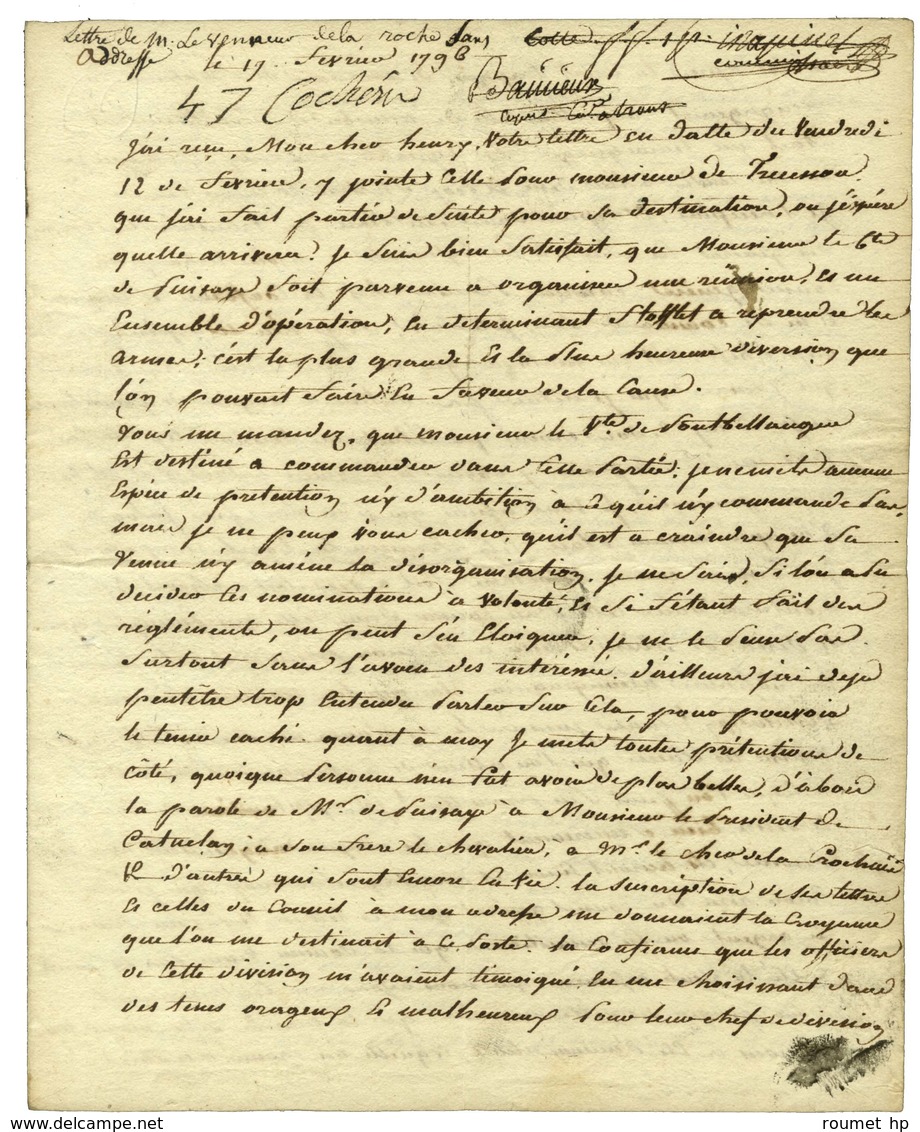 Lettre de M. Le Veneur de la roche sans
addresse le 17 février 1796
47 Cochém
j'ai reçu, Mon cher henry, votre lettre en datte du vendredi
12 de fevrier, y jointe celle pour monsieur de
que j'ai fait partir de suite pour sa destination, ou j'éspére
quelle arrivera. je suis bien satisfait, que Monsieur le Cte
de puisaye soit parvenu a organiser une réunion, et un
Ensemble d'opération, en determinant Stofflet a reprendre les
armes; c'ést la plus grande et la plus heureuse diversion que
l'on pouvait faire en faveur de la cause.
vous me mandez, que monsieur le Vte de pontbellanger
est destiné a commander dans cette partie; je ne mets aucune
Espéce de prétention n'y d'ambition à ce qu'il n'y commande pas,
mais je ne peux vous cacher, qu'il est a craindre que sa
venue n'y améne la désorganisation. je ne sais, si l'on a pu
decider les nominations à volonté, et si s'étant fait des
réglements, on peut s'en Eloigner; je ne le pense pas
surtout sans l'aveu des intéressé. d'ailleurs j'ai deja
peutêtre trop Entendu parler sur cela, pour pouvoir
le tenir caché. quant à moy je mets toutes prétentions de
côté, quoique personne n'en put avoir de plus belles, d'abord
la parole de Mr de puisaye à Monsieur le president de
Catuelan, à son frere le chevalier, à Mr le cher de la
& d'autres qui sont Encore En vie. la suscription de ses lettres
et celles du Conseil à mon adresse me donnaient la croyance
que l'on me destinait à ce poste. la confiance que les officiers
de cette division m'avaient témoigné, en me choisissant dans
des tems orageux et malheureux pour leur chef de division
roumet hp